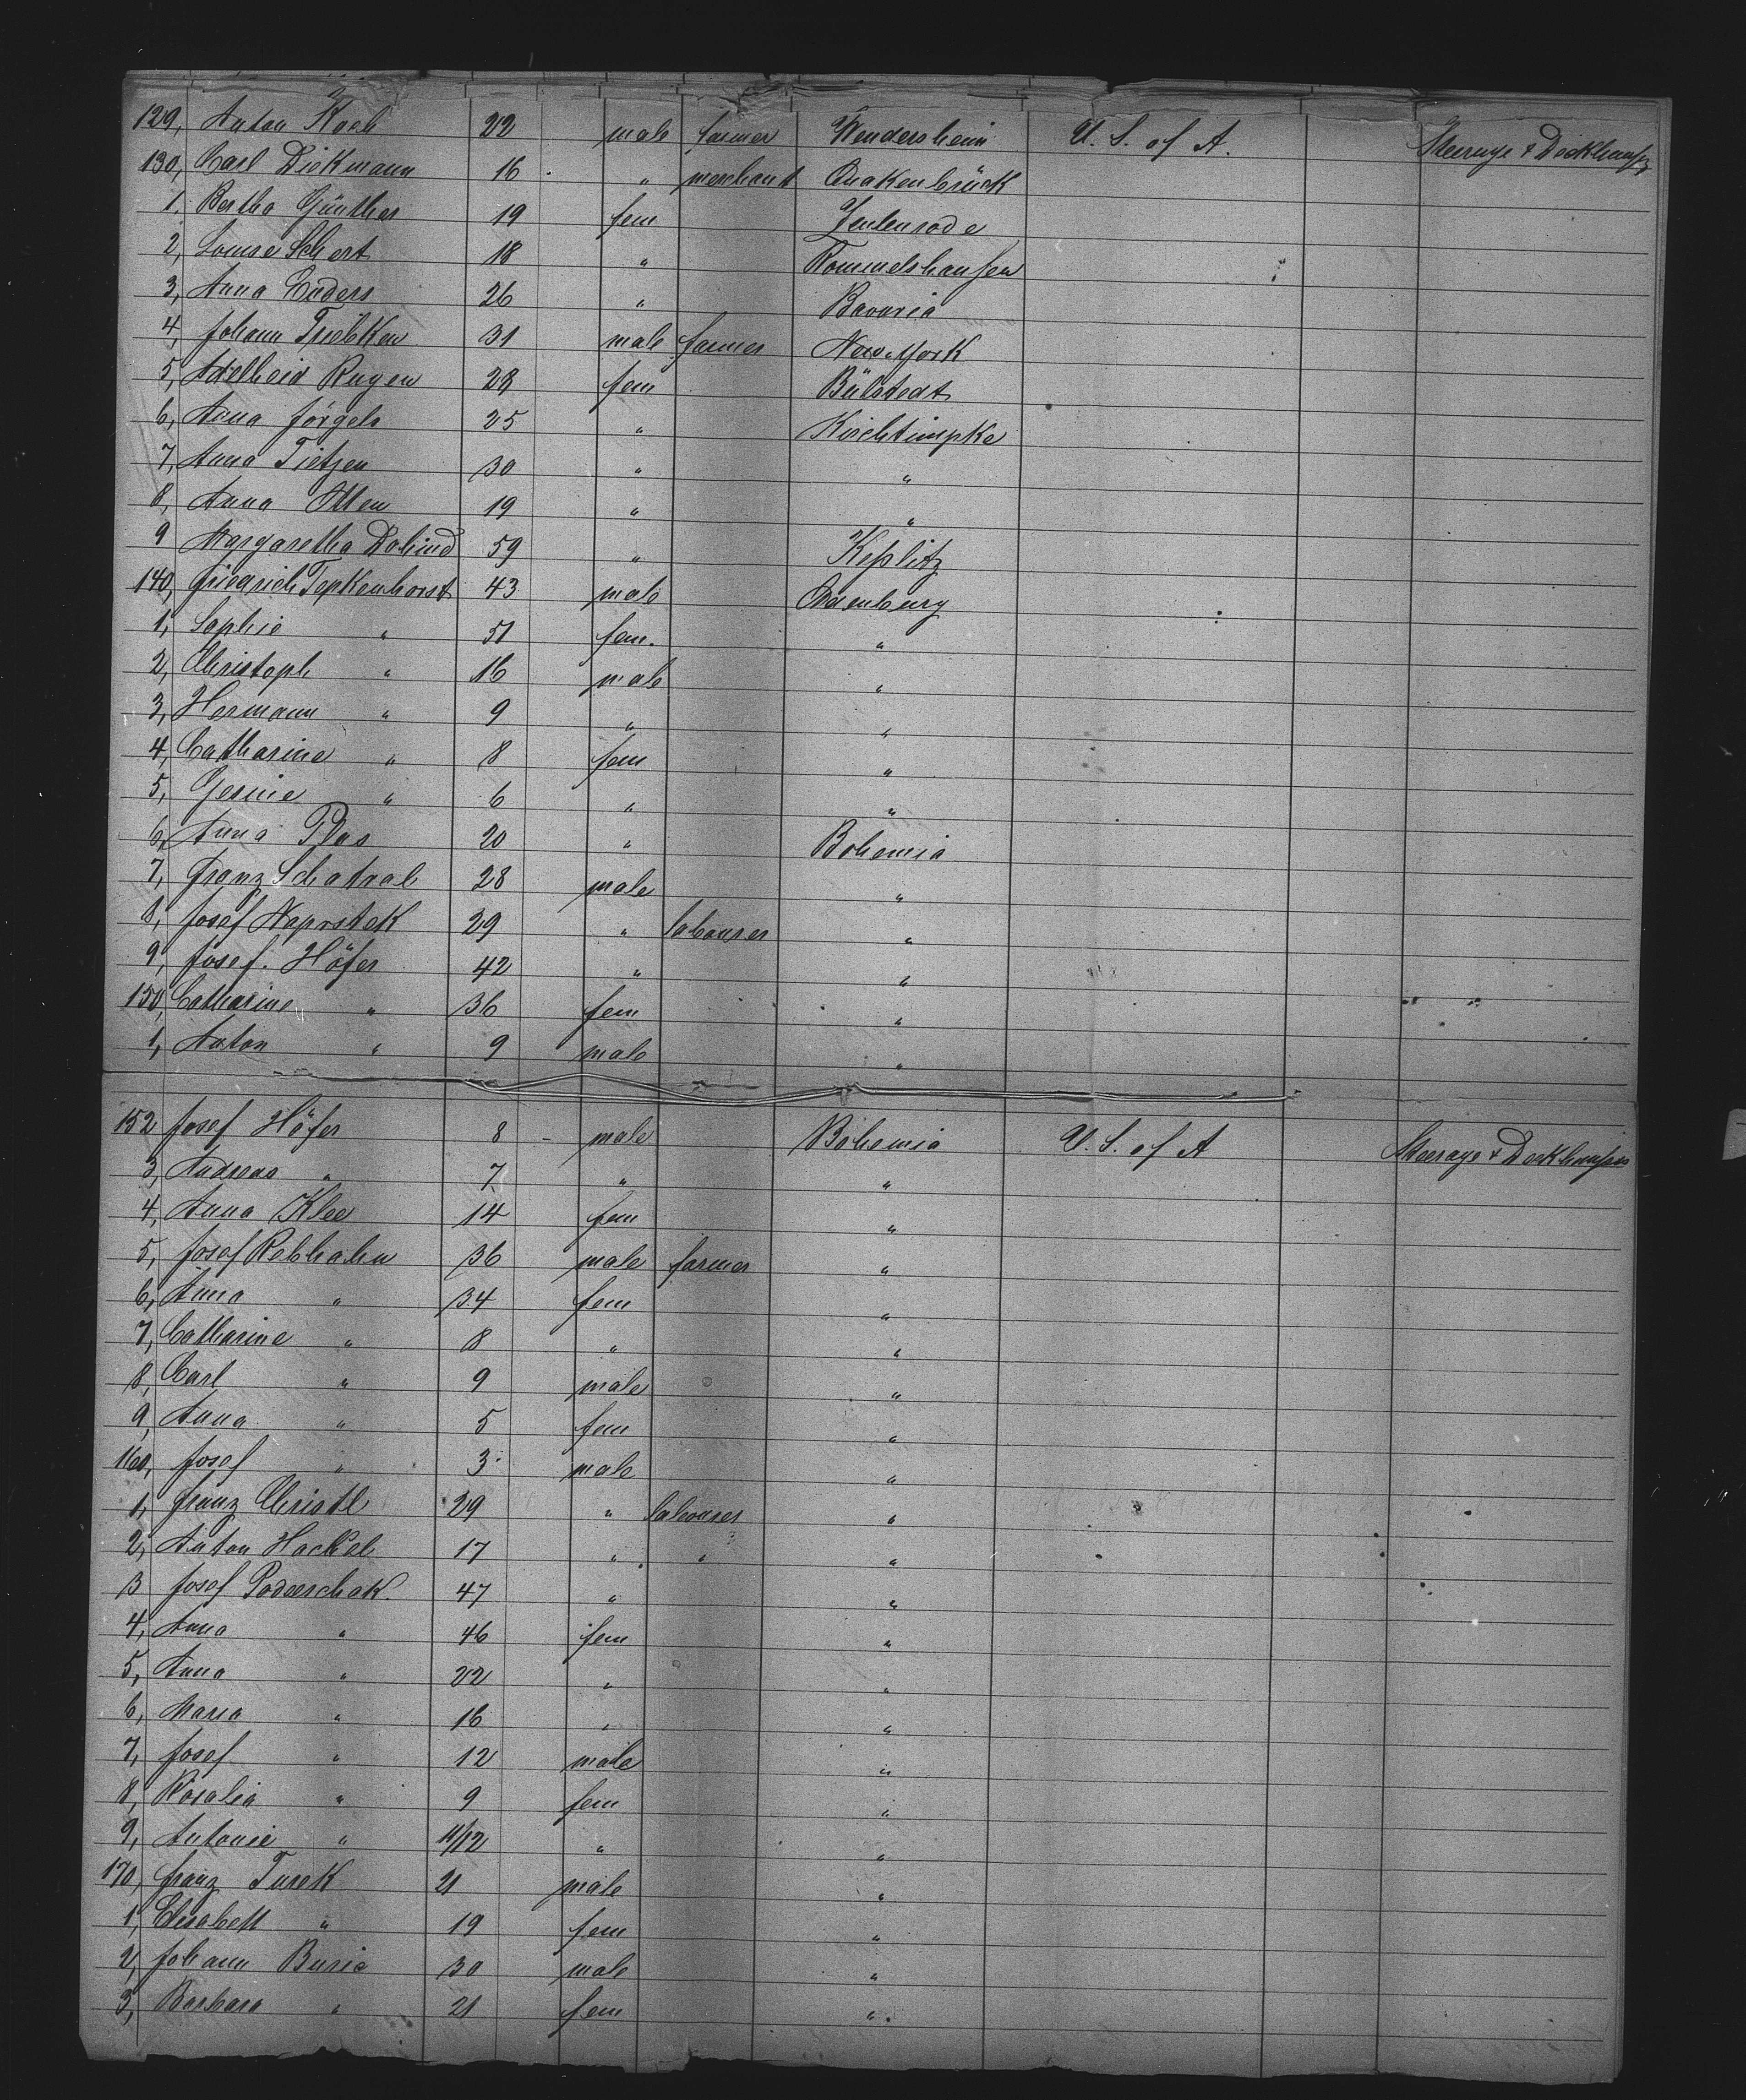 129, Anton Koch 22 male farmer Wendersheim U. S. of A. Steerage & Deckhauser
130, Carl Diekmann 16 " merchant Quakenbrück
1, Bertha Günther 19 fem Zeulenrode
2, Louise Schert 18 " Rommelshausen
3, Anna Enders 26 " Bavaria
4, Johann Tiebken 31 male farmer New-York
5, Adelheid Rugen 28 fem Bülstedt
6, Anna Jörgels 25 " Kirchtimpke
7, Anna Tietjen 30 " "
8, Anna Otten 19 " "
9 Margaretha Dohind 59 " Keßlitz
140, Friedrich Tepkenhorst 43 male
1, Sophie " 51 fem. "
2, Christoph " 16 male "
3, Hermann " 9 " "
4, Catharine " 8 fem "
5, Gesine " 6 " "
6, Anna Plas 20 " Bohemia
7, Franz Schatral 28 male "
8, Josef Naprstek 29 " labourer "
9, Josef Höfer 42 " "
150, Catharine " 36 fem "
1, Anton " 9 male "
152 Josef Höfer 8 - male Bohemia U. S. of A Steerage & Deckhauser
3, Andreas " 7 " "
4, Anna Klee 14 fem "
5, Josef Rebhahn 36 male farmer "
6, Anna " 34 fem "
7, Catharine " 8 " "
8, Carl " 9 male "
9, Anna " 5 fem "
160, Josef " 3 male "
1, Franz Christl 29 " labourer "
2, Anton Hackel 17 " " "
3 Josef Poderschak 47 " "
4, Anna " 46 fem "
5, Anna " 22 " "
6, Maria " 16 " "
7, Josef " 12 male "
8, Rosalia " 9 fem "
9, Antonie " 11/12 " "
170, Franz Turek 21 male "
1, Elisabeth " 19 fem "
2, Johann Buris 30 male "
3, Barbara " 21 fem "